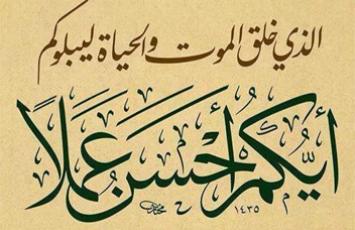 الذي خلق الموت والحياة ليبلوكم
أيُّكُمْ أَحْسَنُ عَمَلاً
١٤٣٥